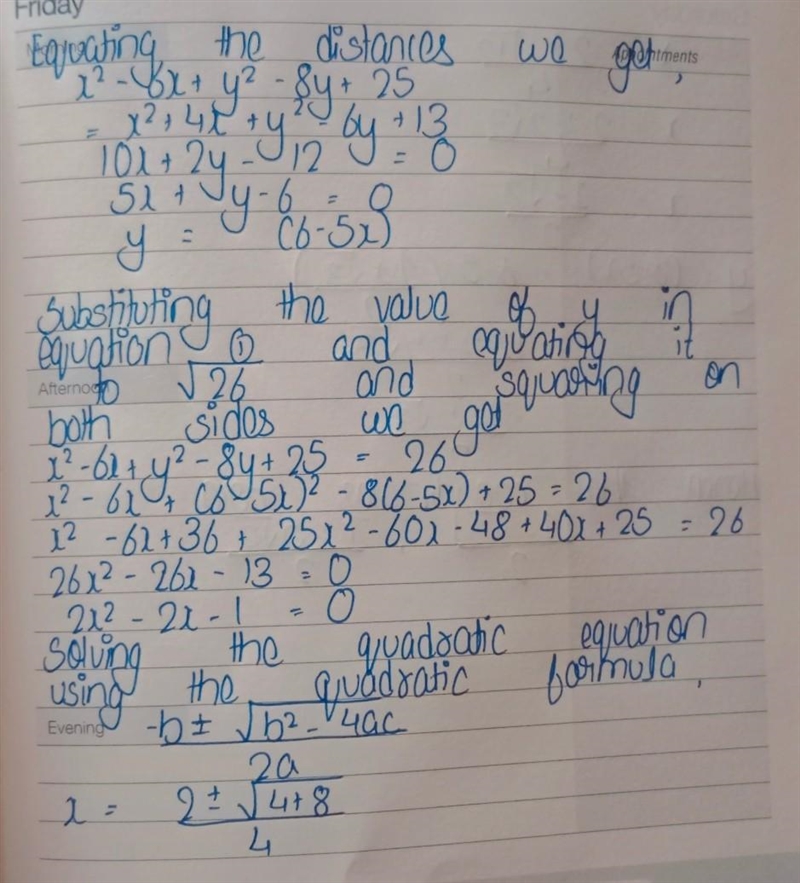 Friday
Equating the distances we get,
ntments
x² - 6x + y² - 8y + 25
= x² + 4x + y² - 6y + 13
10x + 2y - 12 = 0
5x + y - 6 = 0
y = (6-5x)
Substituting the value of y in
equation ① and equating it
Afternoo
to √26 and squaring on
both sides we get
x² - 6x + y² - 8y + 25 = 26
x² - 6x + (6-5x)² - 8(6-5x) + 25 = 26
x² - 6x + 36 + 25x² - 60x - 48 + 40x + 25 = 26
26x² - 26x - 13 = 0
2x² - 2x - 1 = 0
Solving the quadratic equation
using the quadratic formula,
Evening
-b ± √b² - 4ac
2a
x = 2 ± √4+8
4